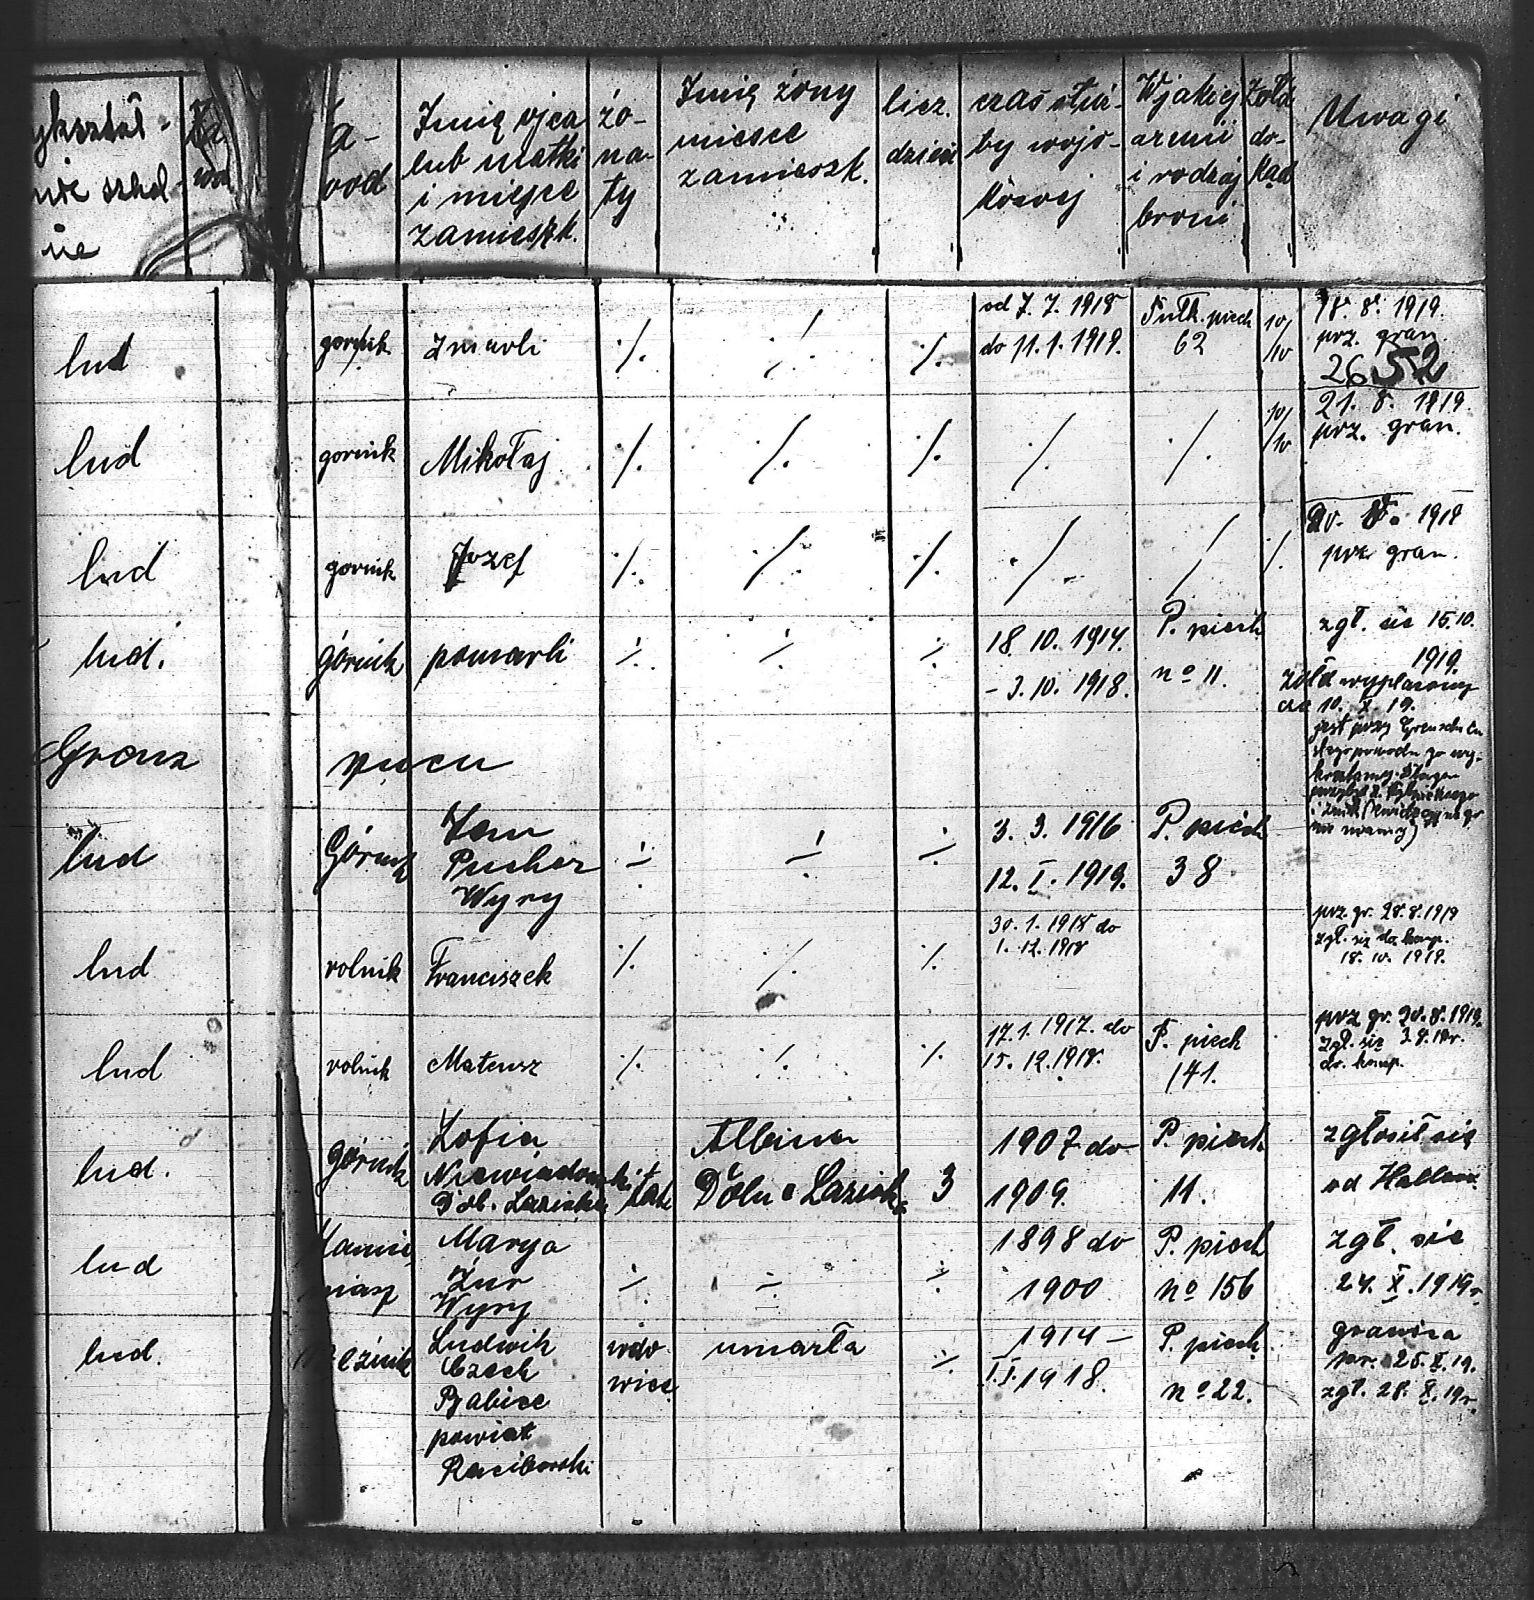 szkol
ne
wod
Imię ojca
lub matki
i miejsce
zamieszk.
żo-
na-
ty
Imię żony
miesce
zamieszk.
licz.
dzieci
czas służ-
by wojs-
kowej
W jakiej
armii
i rodzaj
broni
Żołd
do-
kąd
Uwagi
lud
gornik
zmarli
·/.
·/.
·/.
od 7. 7. 1918
do 11. 1. 1919.
Pułk. piech
62
10/
/10
18. 8. 1919.
prz. gran.
2652
lud
gornik
Mikołaj
·/.
·/.
·/.
·/.
·/.
10/
/10
21. 8. 1919.
prz. gran.
lud
gornik
Jozef
·/.
·/.
·/.
·/.
/
·/.
1919
prz gran.
lud.
górnik
pomarli
·/.
·/.
·/.
18. 10. 1914.
- 3. 10. 1918.
P. piech
no 11.
zgł. sie 15.10.
1919.
żołd wypłacony
do 10. X. 19.
jest przy
Grenz
lud
Górnik
Jan
Pucher
Wyry
·/.
·/.
·/.
3. 3. 1916
12. I. 1919.
P. piech
38
lud
rolnik
Franciszek
·/.
·/.
·/.
30. 1. 1918 do
1. 12. 1918
prz gr. 28. 8. 1919
zgł. się do komp.
18. 10. 1919.
lud
rolnik
Mateusz
·/.
·/.
·/.
17. 1. 1917. do
15. 12. 1918.
P. piech
141.
prz gr. 20. 8. 1919.
zgł. się
do. komp.
lud.
górnik
Zofia
Niewiadomski
Dol. Laziska
tak
Albina
Dolne Lazisk.
3
1907 do
1909.
P. piech
11.
zgłosił się
od Hallera.
lud
Marya
Żur
Wyry
·/.
·/.
·/.
1898 do
1900
P. piech
no 156
zgł. sie
24. X. 1919r.
lud.
Ludwik
Czech
Babice
powiat
Raciborski
wdo
wiec
umarła
·/.
1914 –
1918.
P. piech.
no 22.
granica
prz. 25. X. 19.
zgł. 28. X. 19r.